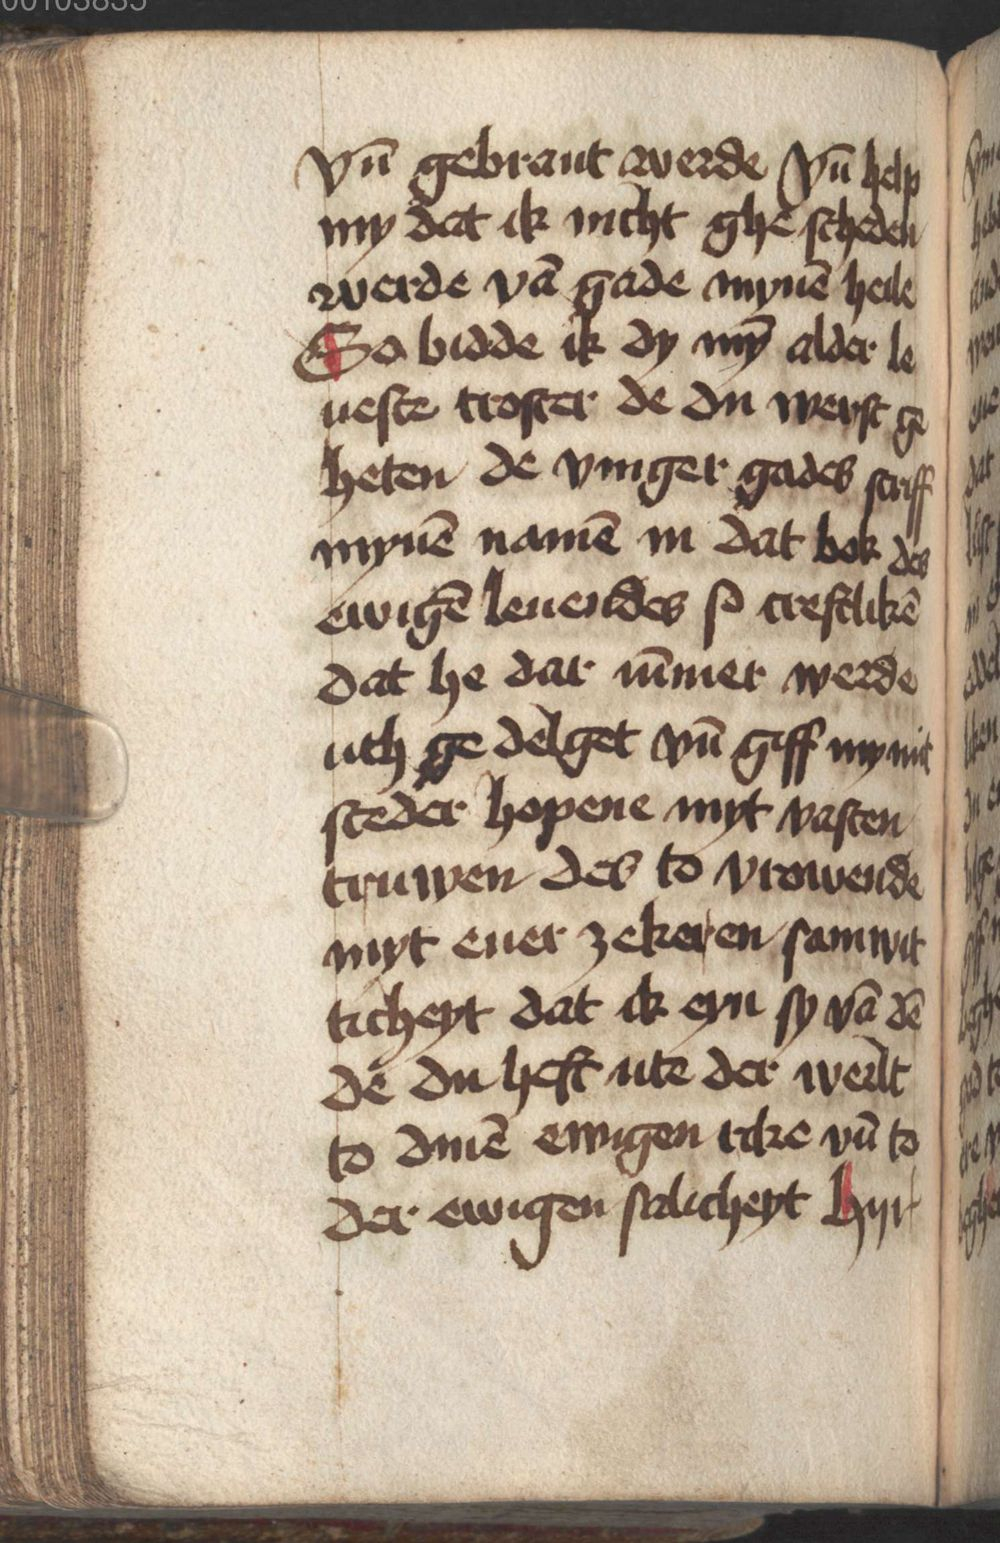 00103835
vn̄ gebrant werde Vn̄ help
my dat ik nicht ghe scheden
werde vā gade mynē heile
So bidde ik dy mȳ alder le
ueste troster de du werst ge
heten de vinger gades scriff
mynē namē in dat bok des
ewigē leuendes so trefflikē
dat he dar nūmer werde
uth ge delget vn̄ giff my mit
steder hopene myt vasten
truwen des to vrowende
myt ener zekeren samwit
ticheyt dat ik eyn sy vā dē
de du hest ute der werlt
to dinē ewigen rike vn̄ to
der ewigen salicheyt hijr